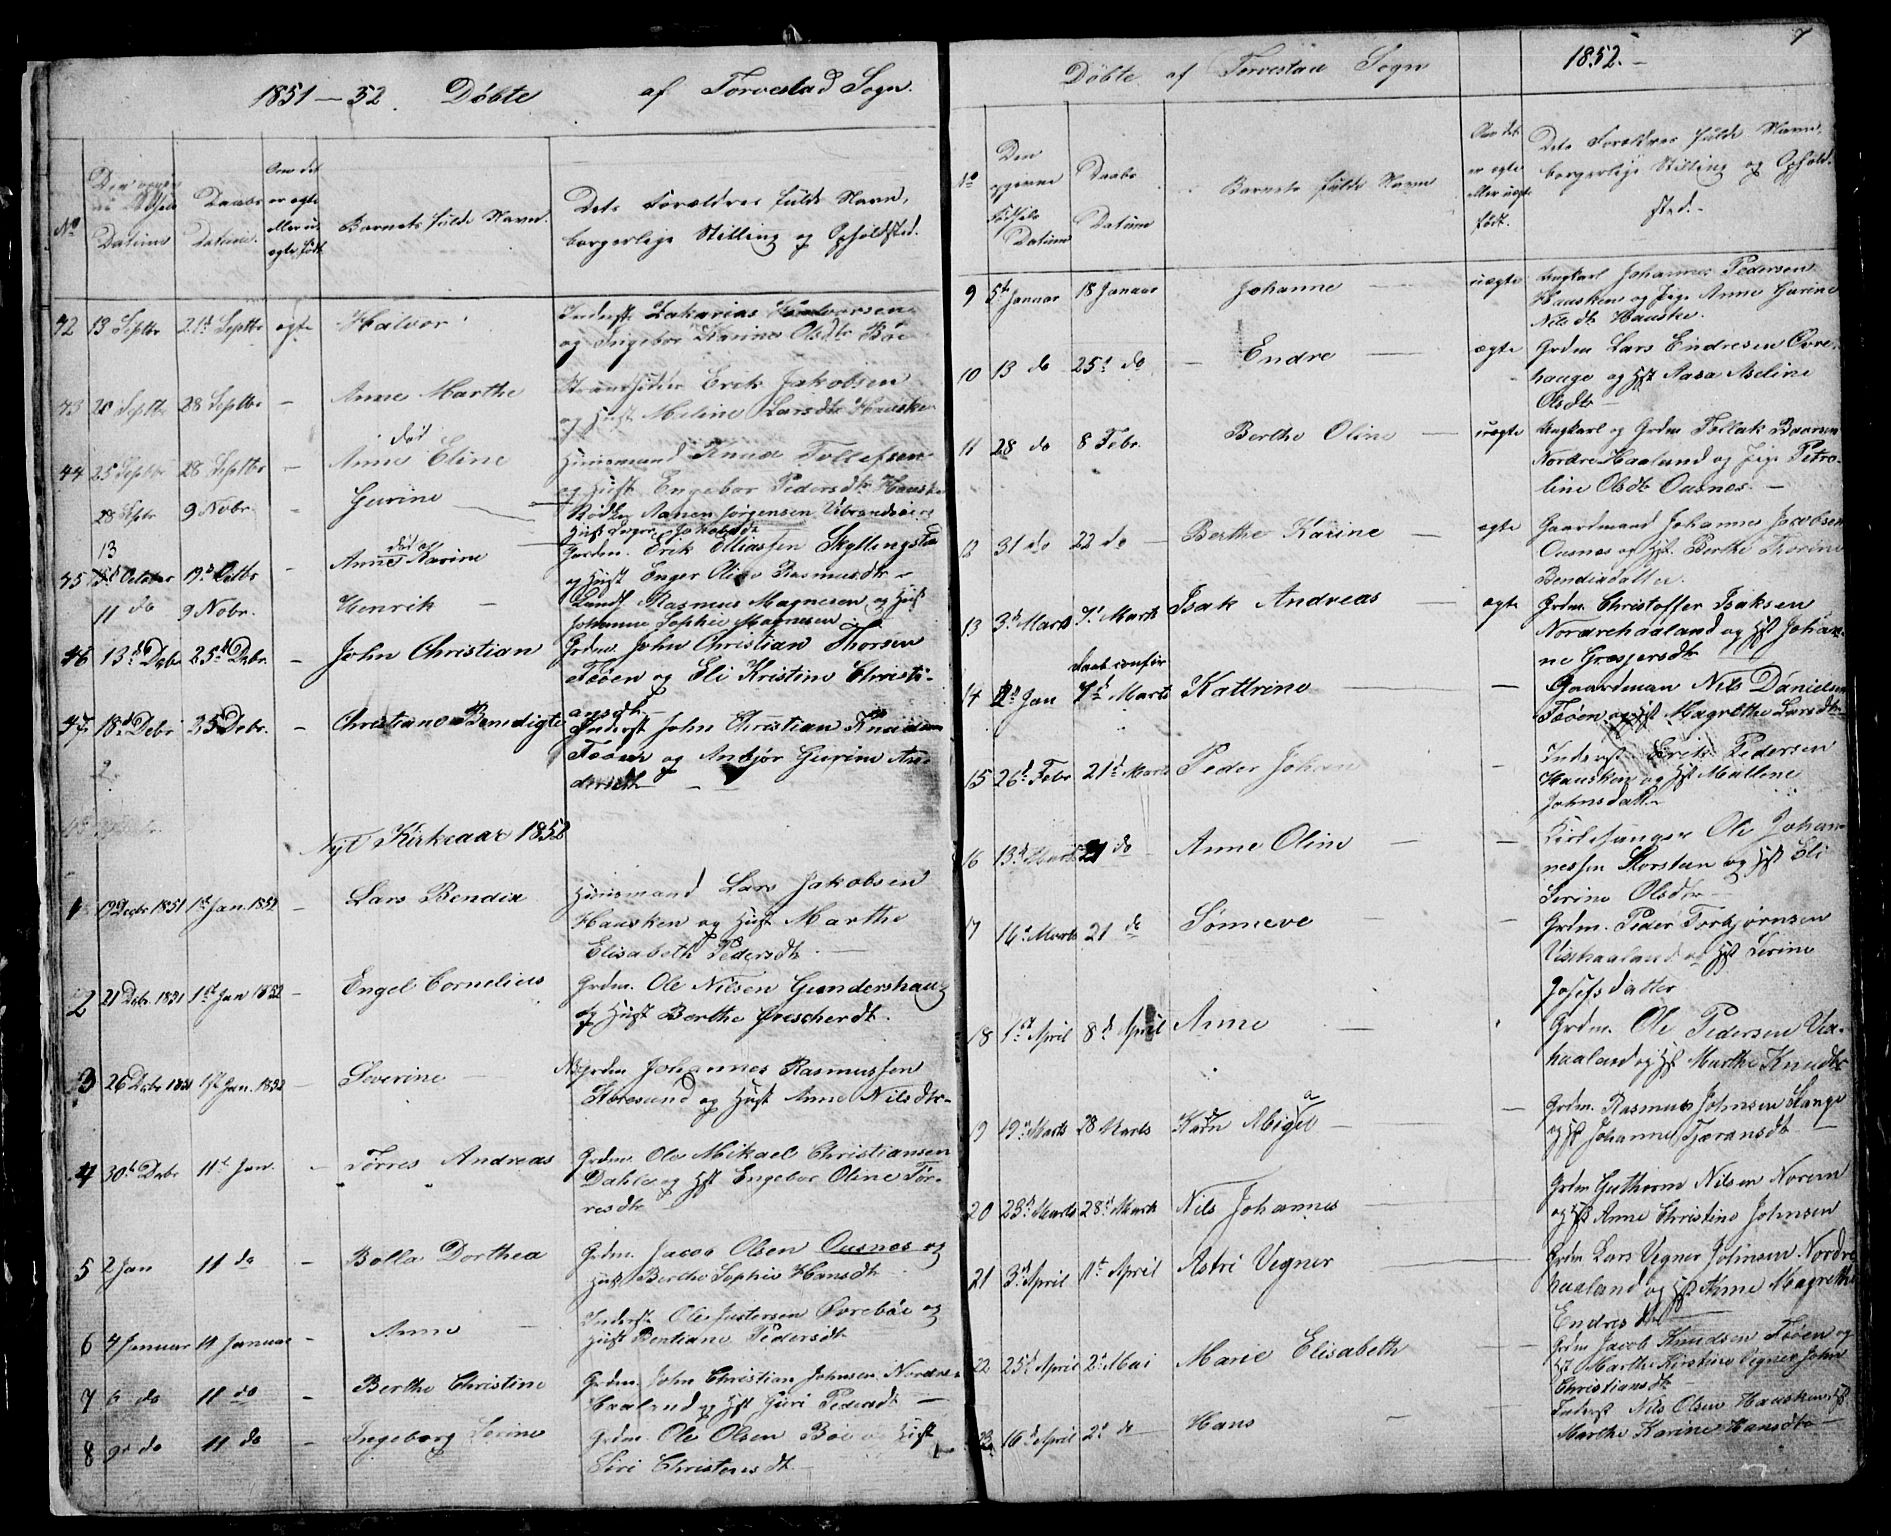 1851–52. Döbte af Torvestad Sogn.
No
Datum
Daabs
Datum.
Om det
er egte
eller u
egte født
Barnets fulde Navn.
Dets Forældres fulde Navn,
borgerlige Stilling og Opholdsted.
42 13 Septbr 21d Septbr egte Halvor
Inderst Zakarias Halvorsen
og Ingebor Karine Olsdtr Böe
43 28 Septbr – Anne Marthe
Strandsidder Erik Jakobsen
og Hust Meline Larsdtr Hausken
død
44 25 Septbr 28 Septbr – Anne Eline
Huusmand Knud Tollefsen
og Hust Engebor Pedersdtr Hausken
28 Septbr 9 Nobr. – Gurine
Jørgensen Vibrandsöe
Hust Jakobsdtr
død
13
45 October 19d Octbr – Anne Karine
Gaardm. Erik Elliassen Skyllingstad
og Hust Enger Oline Rasmusdtr –
11 do 9 Nobr. Henrik –
Landh. Rasmus Magnesen og Hust
Johanne Sophie Magnesen
46 13d Debr 25d Debr. – John Christian
Grdm. John Christian Thorsen
Feöen og Eli Kristine Christi-
ansdtr –
47 18d Debr 25d Debr. – Christiane Benedigte
Inderst John Christian Knudsen
Feöen og Anbjør Gurine An-
dersdtr –
Nyt Kirkeaar 1852
1 19 Decbr 1851 1st Jan. 1852 – Lars Bendix
Huusmand Lars Jakobsen
Hausken og Hust Marthe
Elisabeth Pedersdtr –
2 21 Debr. 1851 1st Jan 1852 – Engel Cornelius
Grdm. Ole Nilsen Gundershaug
og Hust Berthe
3 26 Debr 1851 1st Jan. 1852 – Severine –
Grdm Johannes Rasmussen
Storesund og Hust Anne Nilsdtr–
4 30d Debr 11d Jan. – Tørres Andreas
Grdm. Ole Mikael Christiansen
Dahle og Hst Engebor Oline Tør-
resdtr
5 2 Jan 11 do – Bolla Dorthea
Grdm. Jacob Olsen Ousnes og
Hust Berthe Sophie Hansdtr
6 4 Januar 11 Januar – Anne –
Inderst Ole Justersen Øvreböe og
Hust Bentiane Pedersdtr
7 6 do 11 do – Berthe Christine
Grdm. John Christian Johnsen Nordre-
Haaland og Hst Guri Pedersdtr –
8 9d do 11 do – Ingeborg Serine
Grdm. Ole Olsen Böe og Hust
Siri Christensdtr –
Döbte af Torvestad Sogn 1852.– 7
No
Den
opgivne
Fødsels
Datum
Daabs
Datum
Barnets fulde Navn
Om det
er egte
eller uegte
født.
Dets Forældres fulde Navn,
borgerlige Stilling og Ophold-
sted.–
9 5te Januar 18 Januar Johanne – uegte
Ungkarl Johannes Pedersen
Hausken og Pige Anne Gurine
Nilsdtr Hausken
10 13 do 25d do – Endre – egte
Grdm Lars Endresen Øvre-
hauge og Hst Aasa Aseline
Olsdtr –
11 28 do 8 Febr. Berthe Oline – uegte
Ungkarl og Grdm Tollak Baarsen
Nordre Haaland og Pige Petro-
line Olsdtr Ousnes –
12 31 do 22 do – Berthe Karine – egte
Gaardmand Johannes Jacobsen
Ousnes og Hst. Berthe Thorine
Bendixdatter.
13 3d Marts 7d Marts Isak Andreas – egte
Grdm. Christoffer Isaksen
Nordrehaaland og Hst Johan-
ne Graspersdtr
daab confir
14 2d Jan 7d Marts Kattrine – –
Gaardman Nils Danielsen
Feöen og Hst Magrethe Larsdtr
15 26d Febr 21d Marts Peder Johan
Inderst Erik Pedersen
Hausken og Hst Mallene
Johnsdatter
16 13d Marts 21 do – Anne Oline – –
Kirkesanger Ole Johan-
nessen Storstein og Hst Eli
Serine Olsdtr –
17 14d Marts 21 do Sønneve – –
Grdm. Peder Torbjørnsen
Vishaaland og Hst Serine
Josefsdatter
18 1st April 8d April Anne –
Grdm. Ole Pedersen Vis-
haaland og Hst Marthe Knudtr
19 19d Marts 28 Marts Karn Abigel – –
Grdm. Rasmus Johnsen Stange
og Hst Johanne Tjæransdtr
20 23d Marts 28d Marts Nils Johannes – –
Grdm Guthorm Nilsen Norem
og Hst Anne Christine Johnsen
21 3d April 11t April Astri Vegner – –
Grdm Lars Vegner Johnsen Nordre
haaland og Hst Anne Magrethe
Endresdtr
22 25d April 2d Mai Marie Elisabeth – –
Grdm Jacob Knudsen Feöen og
Hst Marthe Kirstine Vegner John
Christiansdtr –
23 16d April 2d do – Hans – –
Inderst Nils Olsen Hausken og Hst.
Marthe Karine Hansdtr –